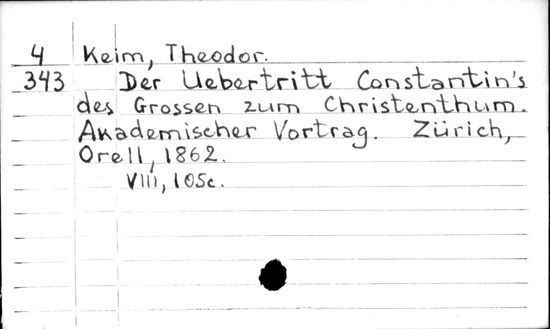 4 Keim, Theodor.
343 Der Uebertritt Constantin's
des Grossen zum Christenthum.
Akademischer Vortrag. Zürich,
Orell, 1862.
VIII, 105c.